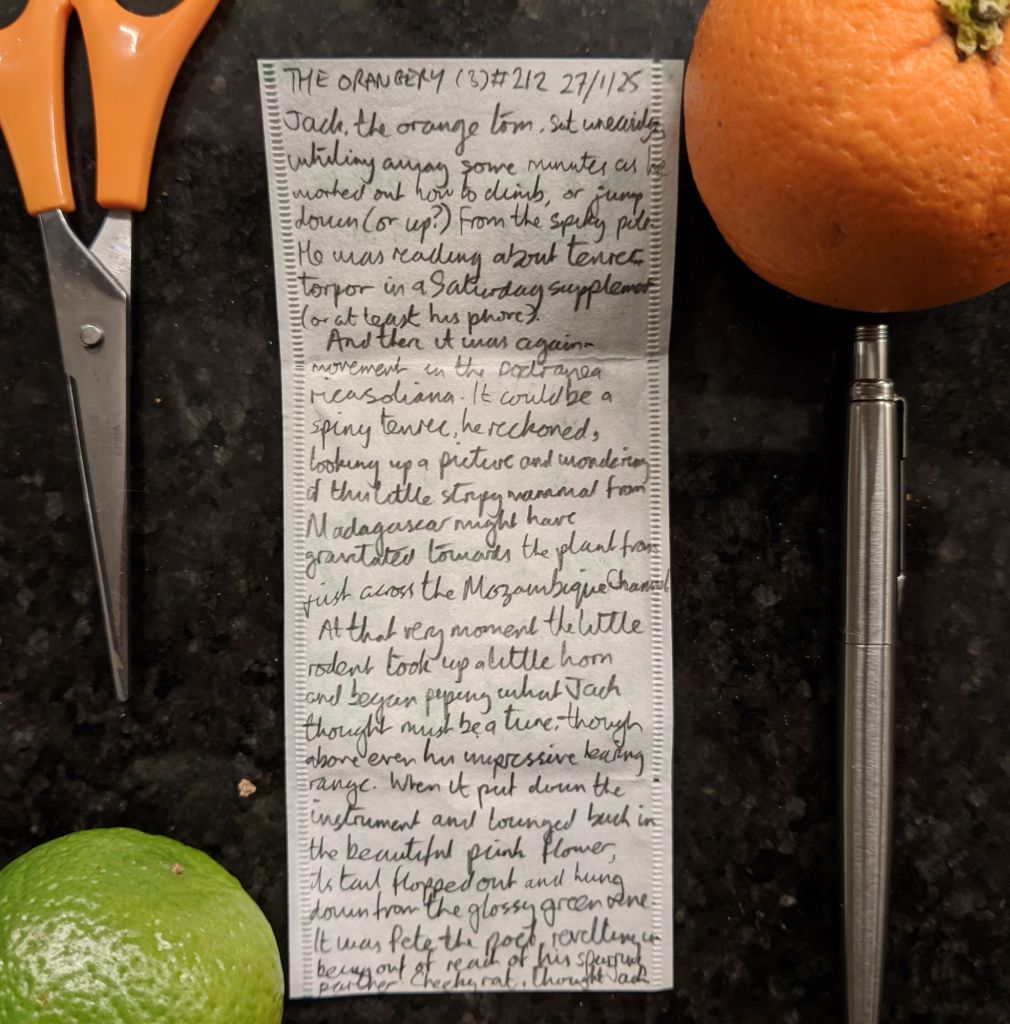 THE ORANGERY (3) #212 27/1/25
Jack, the orange tom, sat uneasily,
whiling away some minutes as he
worked out how to climb, or jump
down (or up?) from the spiky pile.
He was reading about tenrec
torpor in a Saturday supplement
(or at least his phone).
And there it was again-
movement in the Podranea
ricasoliana. It could be a
spiny tenrec, he reckoned,
looking up a picture and wondering
if this little stripy mammal from
Madagascar might have
gravitated towards the plant from
just across the Mozambique Channel
At that very moment the little
rodent took up a little horn
and began piping what Jack
thought must be a tune, though
above even his impressive hearing
range. When it put down the
instrument and lounged back in
the beautiful pink flower,
its tail flopped out and hung
down from the glossy green vine
It was Pete the poet, revelling in
being out of reach of his sparring
partner. Cheeky rat, thought Jack.